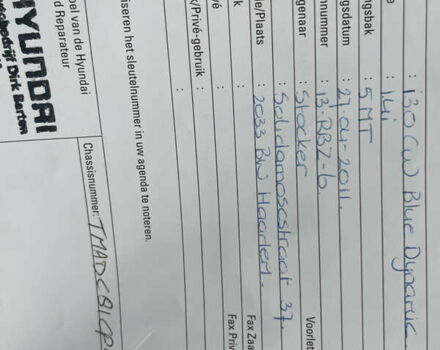 : i30 CW Blue Dynamic
: 1.4i
gsbak : 5MT
gsdatum : 27-04-2011.
nnummer : 13-RBZ-6
genaar : Slocker Voorlet
e/Plaats : Solidamosestraat 37.
: 2033 BW Haarlem.
: Fax Zaa
vé : Fax Priv
k/Privé-gebruik :
iseren het sleutelnummer in uw agenda te noteren.
pel van de Hyundai Chassisnummer: TMADC81CP
d Reparateur
HYUNDAI
bedrijf Dirk Barten